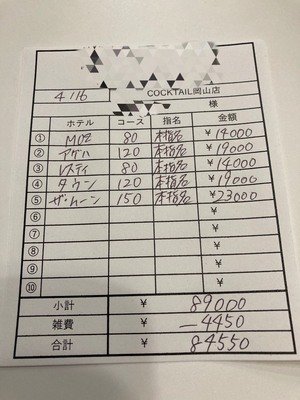 COCKTAIL岡山店
4/16
様
ホテル コース 指名 金額
① M02 80 本指名 ¥14000
② アゲハ 120 本指名 ¥19000
③ レスティ 80 本指名 ¥14000
④ タウン 120 本指名 ¥19000
⑤ ザ・ムーン 150 本指名 ¥23000
⑥ ¥
⑦ ¥
⑧ ¥
⑨ ¥
⑩ ¥
小計 ¥ 89000
雑費 ¥ -4450
合計 ¥ 84550